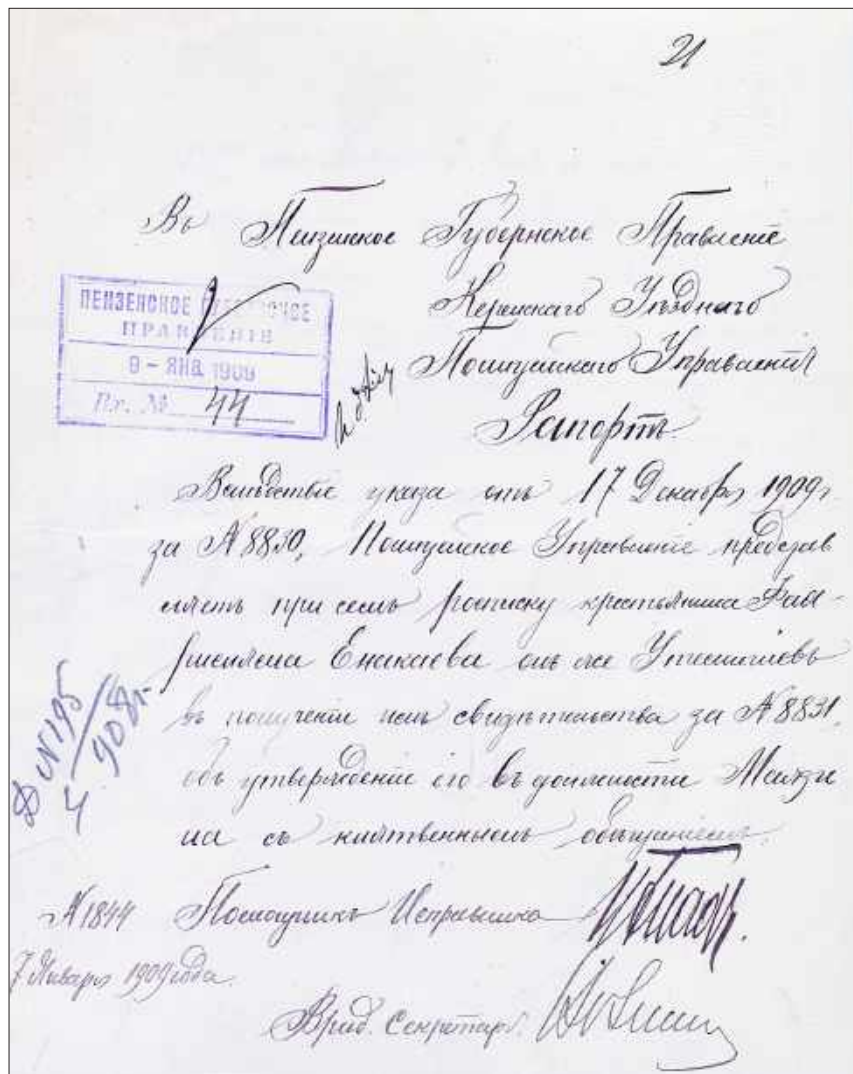 21
Въ Пензенское Губернское Правленіе
Керенскаго Уѣзднаго
Полицейскаго Управленія
Рапортъ.
ПЕНЗЕНСКОЕ ГУБЕРНСКОЕ
ПРАВЛЕНІЕ
9 - ЯНВ 1909
Вх. № 44
Вслѣдствіе указа отъ 17 Декабря 1909 г.
за № 8830, Полицейское Управленіе представ
ляетъ при семъ росписку крестьянина
Еникаева
въ полученіи имъ свидѣтельства за № 8831,
объ утвержденіе его въ должности Мулзи
на съ клятвеннымъ обѣщаніемъ.
Д № 195
Ч. 908 г.
№ 1844 Помощникъ Исправника
7 Января 1909 года.
Врид. Секретаръ